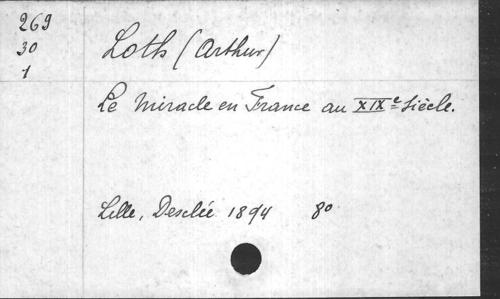 269
30
1
Loth (Arthur)
Le Miracle en France au XIXe Siècle.
Lille, Desclée 1894 8°